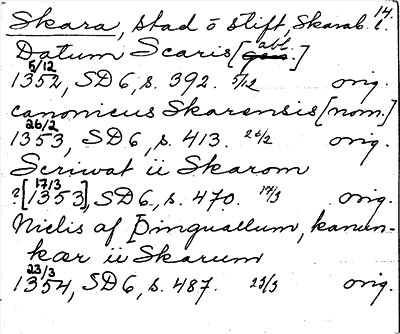 14.
Skara, stad o stift, Skarab. l.
Datum Scaris [abl.]
5/12
1352, SD 6, s. 392. 5/12 orig.
canonicus Skarensis [nom.]
26/2
1353, SD 6, s. 413. 26/2 orig.
Scriwat ii Skarom
17/3
?[1353], SD 6, s. 470. 17/3 orig.
Niclis af Þinguallum, kanun-
kær ii Skarum
23/3
1354, SD 6, s. 487. 23/3 orig.